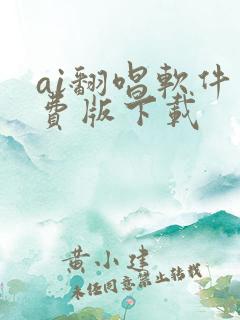 ai翻唱軟件
費版下載
黄小建
未任同意禁止转载